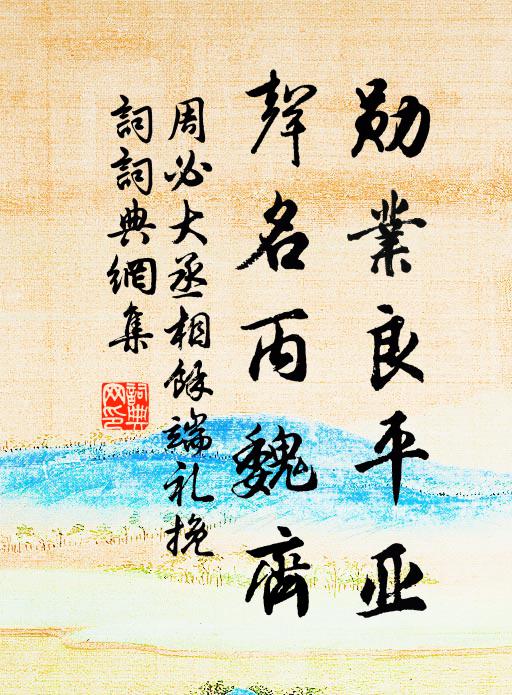 勋業良平亚
聲名丙魏齊
周必大丞相餘端礼挽
詞詞典網集
詞典网印